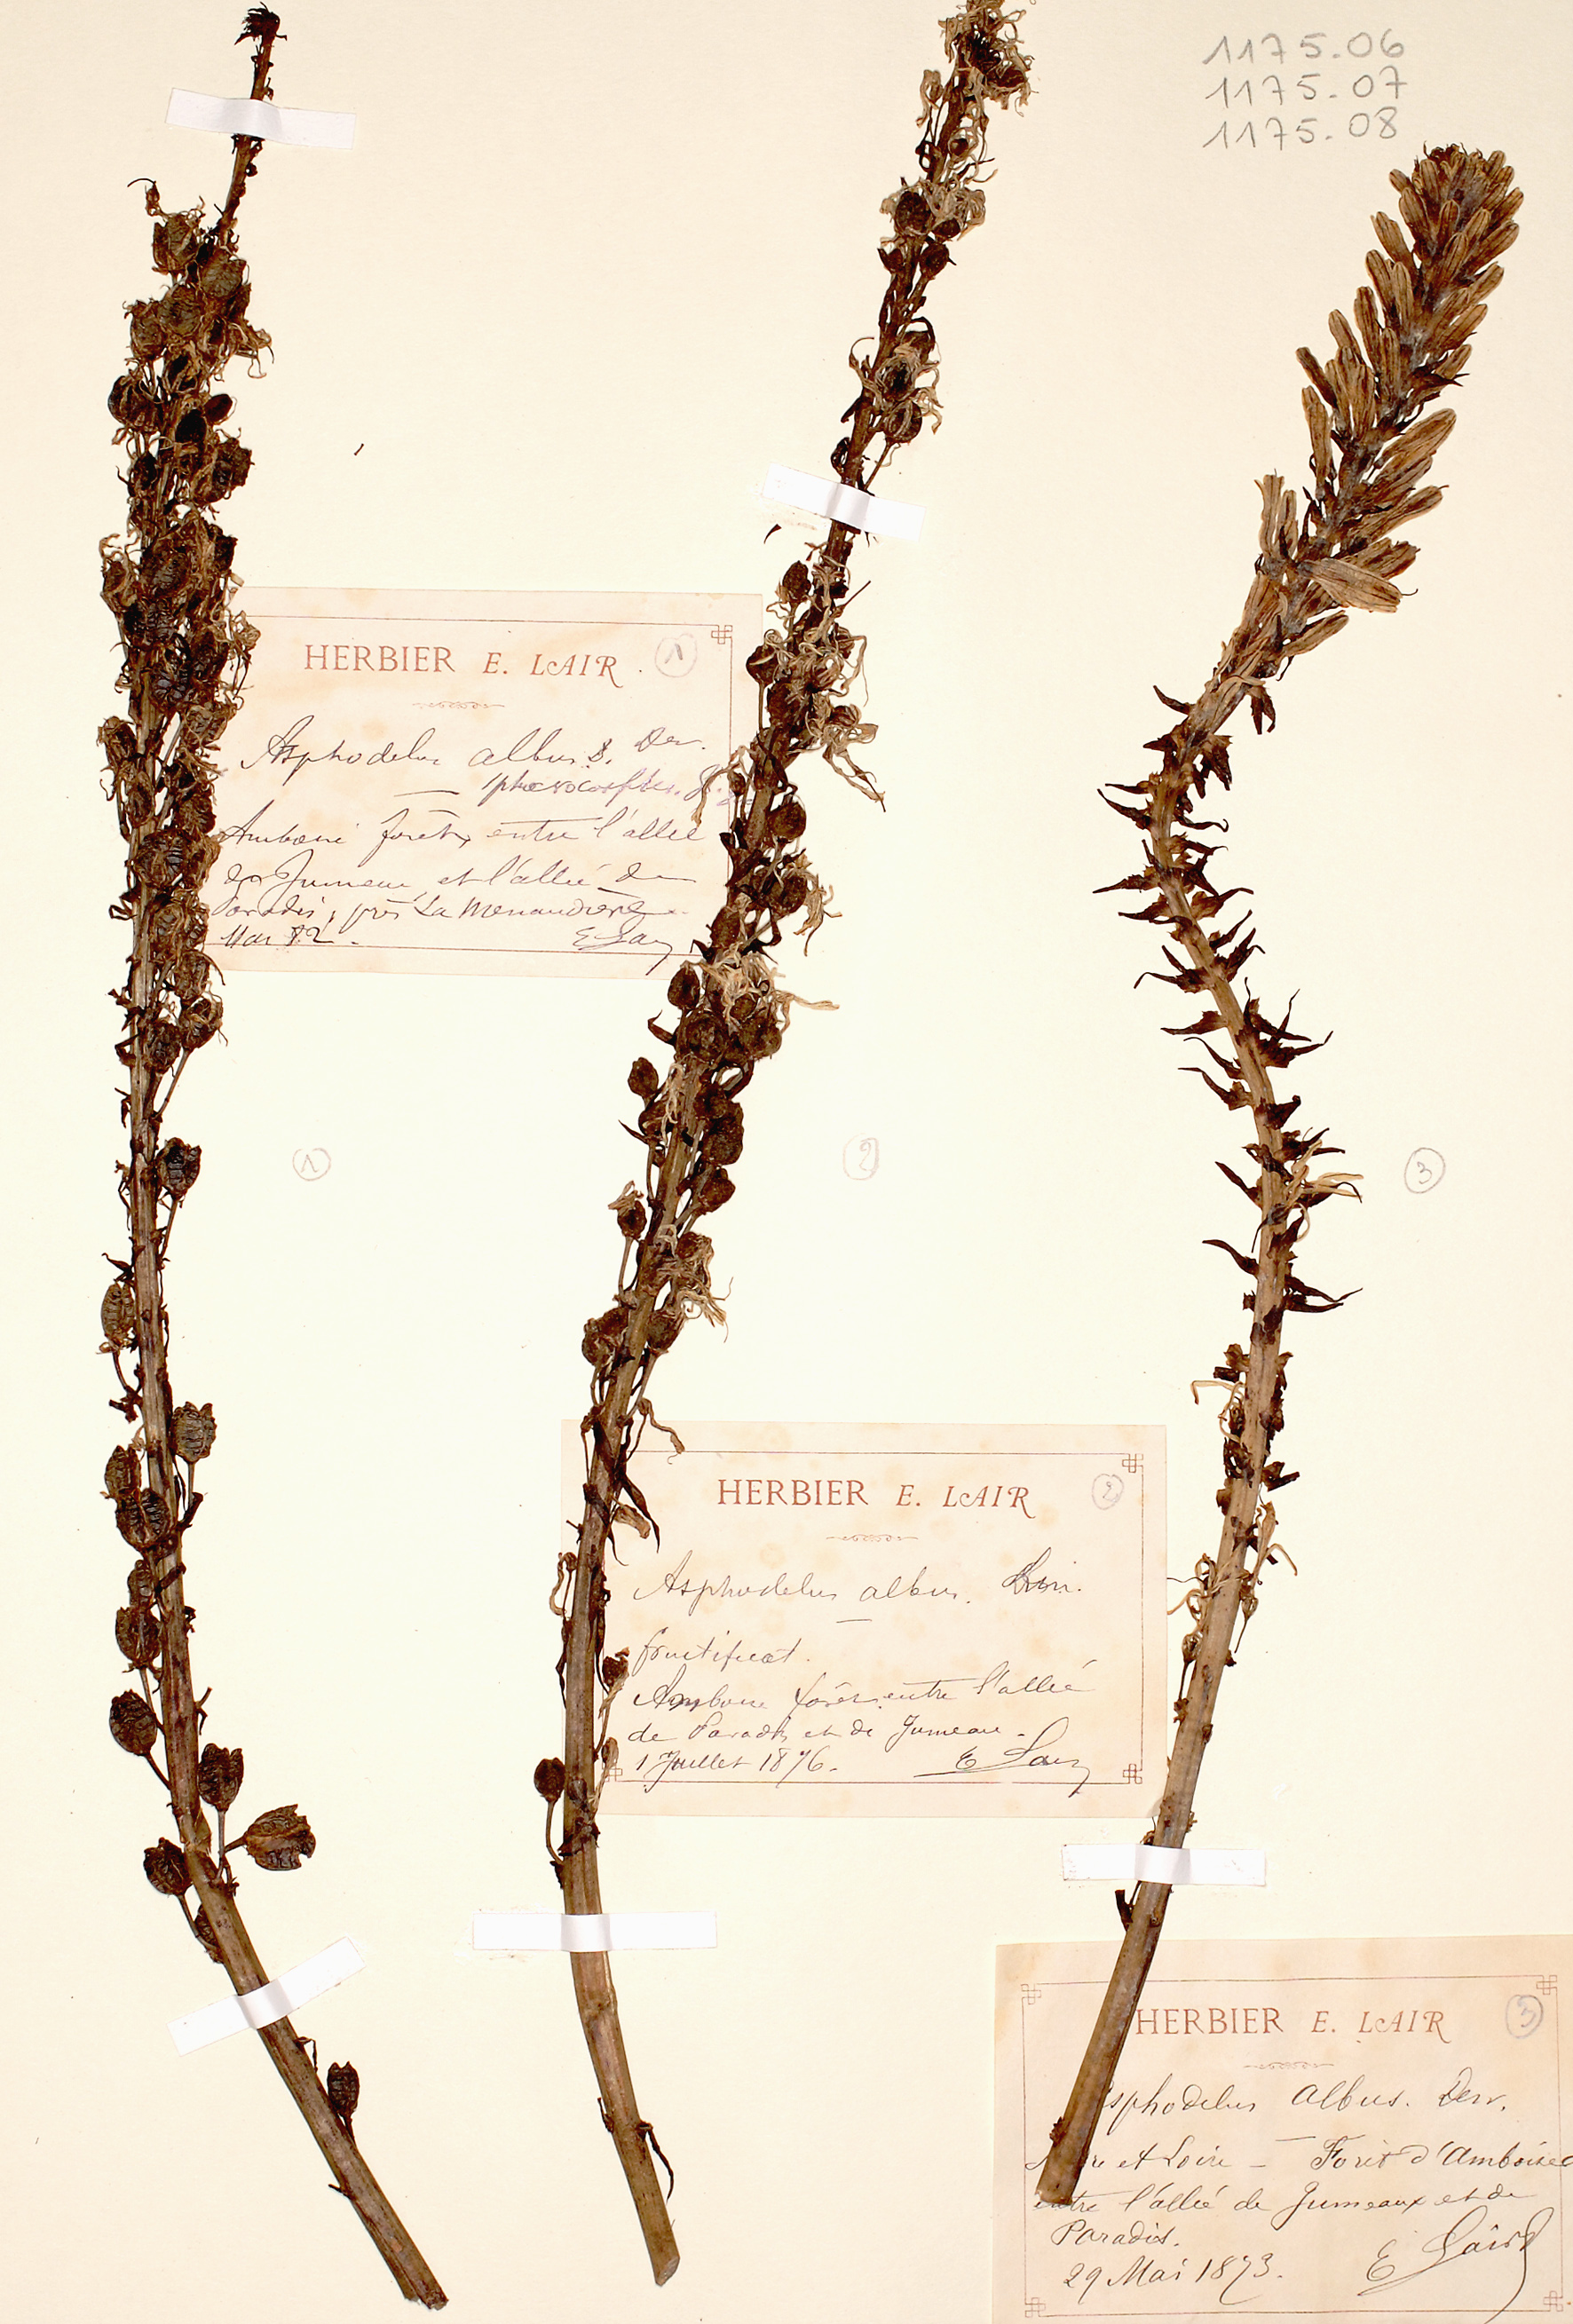 1175.06
1175.07
1175.08
HERBIER E. LAIR.
1
Asphodelus albus. B.
forêt, entre l'allée
Jumeau et l'allée de
Paradis, près La Menaudière
Mai 82.
1
2
3
HERBIER E. LAIR
2
Asphodelus albus.
fructificat.
entre l'allée
de Paradis et de Jumeau.
1 Juillet 1876. E Lair
HERBIER E. LAIR
3
sphodelus albus.
re et Loire – Forêt d'Amboise
entre l'allée de Jumeaux et de
Paradis.
29 Mai 1873. E Lair